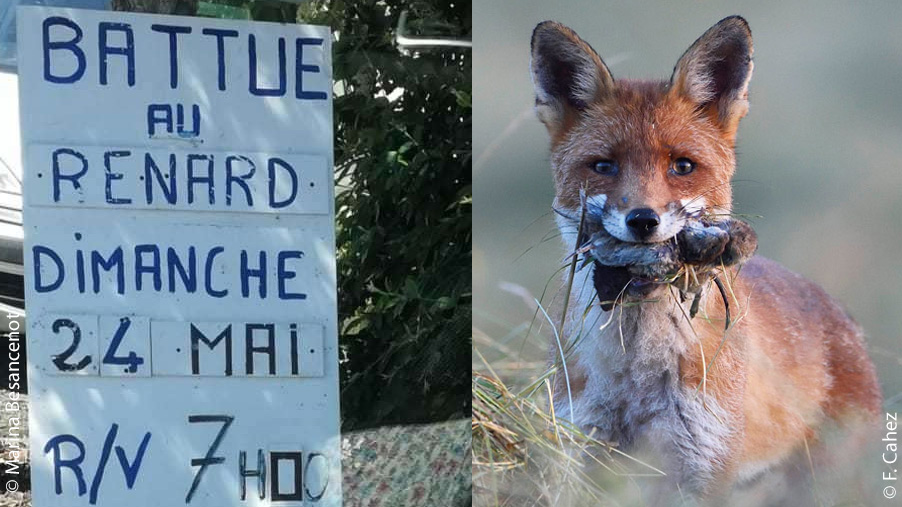 BATTUE
AU
RENARD
DiMANCHE
24 MAi
R/V 7H00
© Marina Besancenot
© F. Cahez